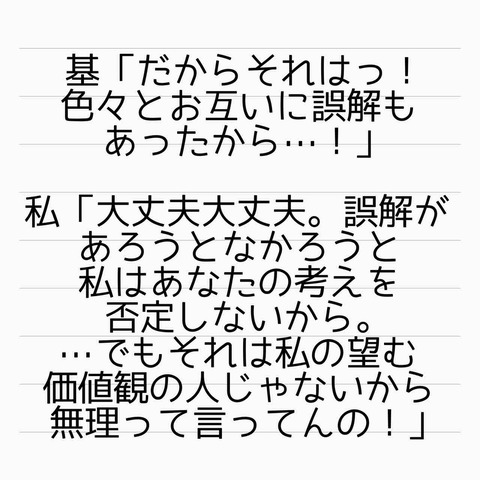 基「だからそれはっ！
色々とお互いに誤解も
あったから…！」
私「大丈夫大丈夫。誤解が
あろうとなかろうと
私はあなたの考えを
否定しないから。
…でもそれは私の望む
価値観の人じゃないから
無理って言ってんの！」